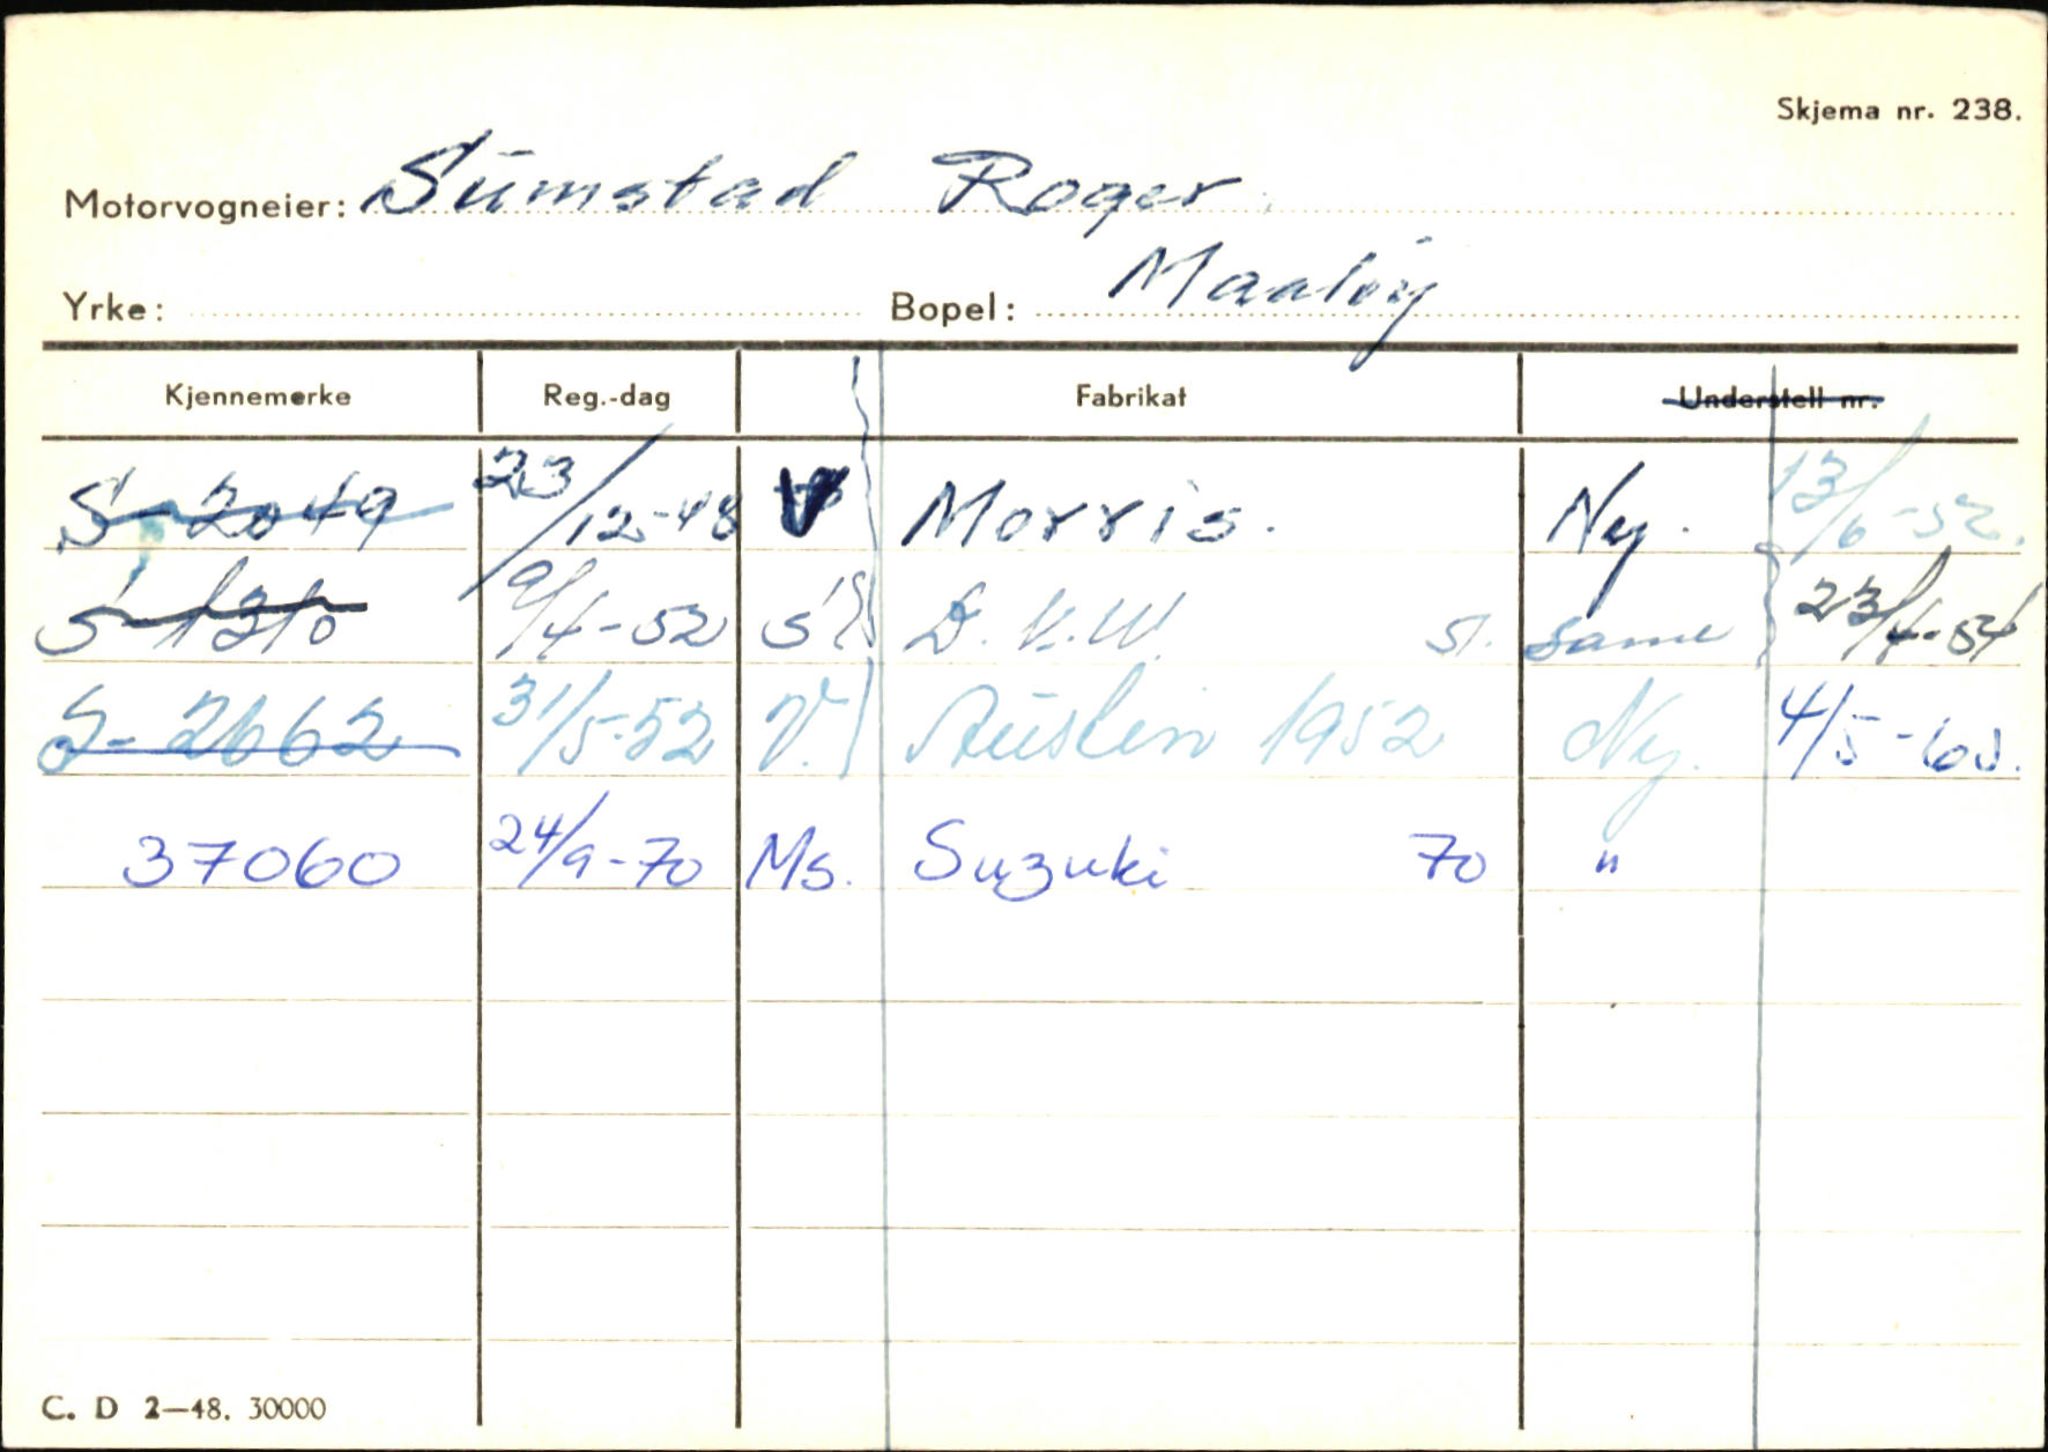 Skjema nr. 238.
Motorvogneier: Sumstad Roger.
Yrke: Bopel: Maaløy
Kjennemerke Reg.-dag Fabrikat Understell nr.
S-2049 23/12-48 V Morris. Ny. 13/6-52.
S-1310 9/4-52 D.K.W. St. same 23/4-54
S-2662 31/5-52 V. Austin 1952 Ny. 4/5-60.
37060 24/9-70 Ms. Suzuki 70 "
C. D 2—48. 30000